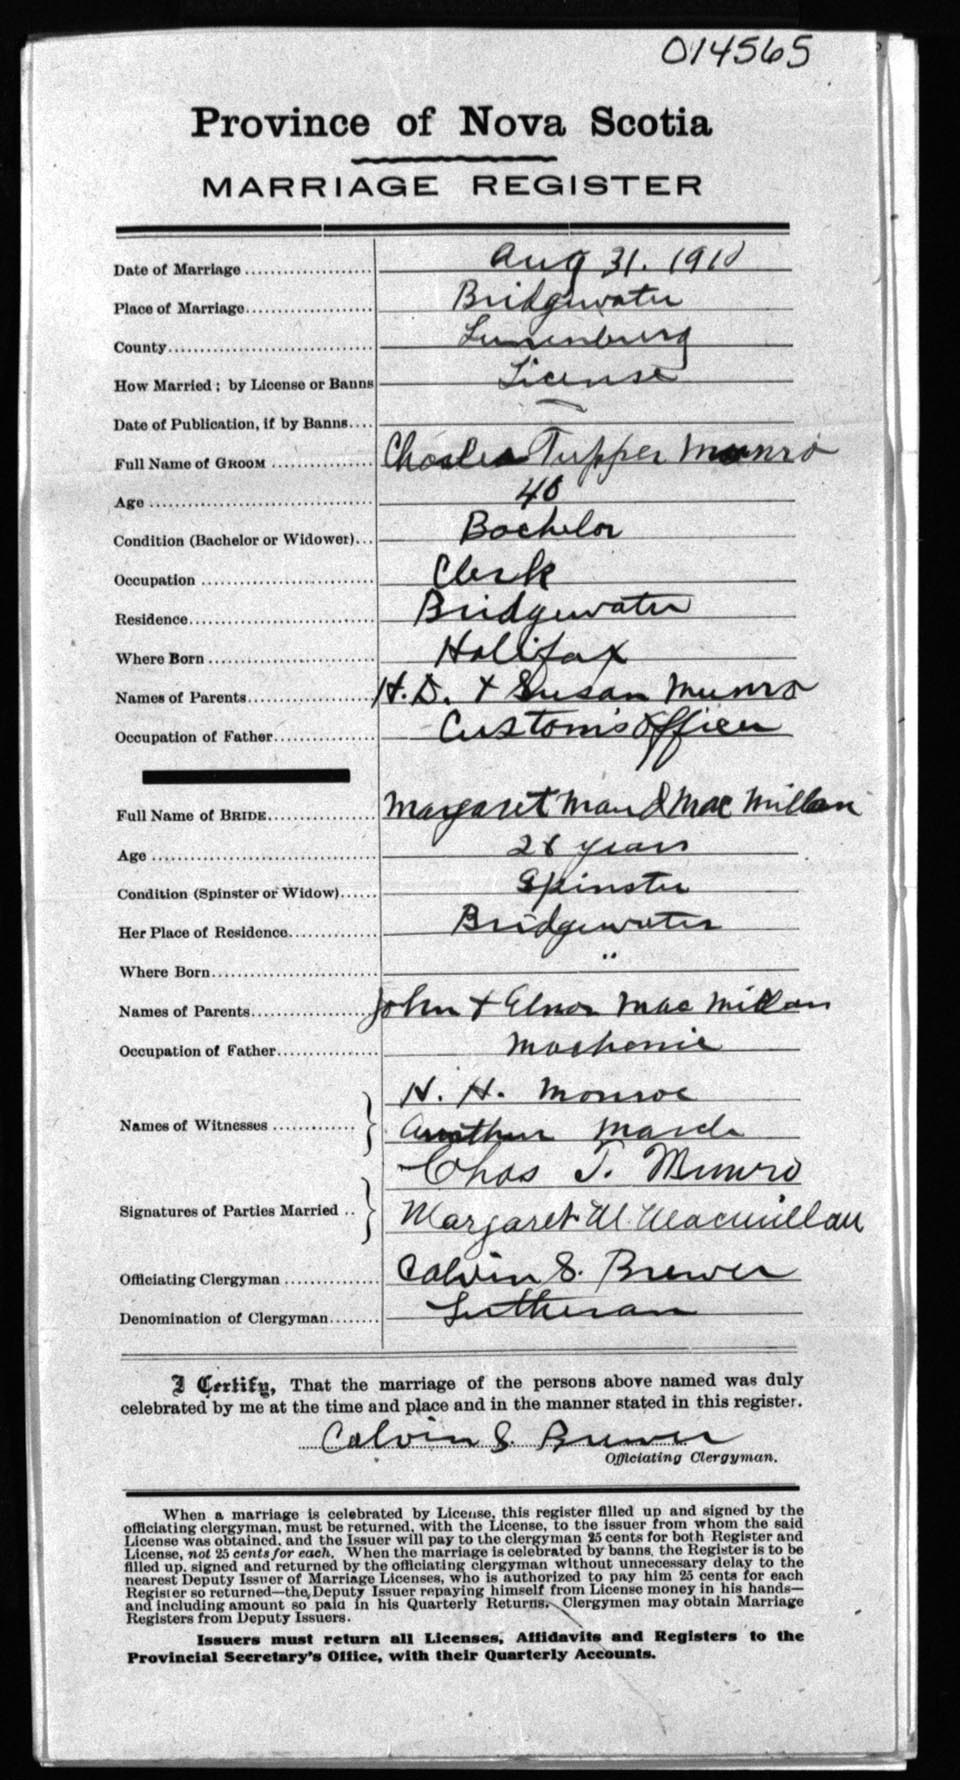 014565
Province of Nova Scotia
MARRIAGE REGISTER
Date of Marriage Aug 31. 1910
Place of Marriage Bridgewater
County Lunenburg
How Married; by License or Banns License
Date of Publication, if by Banns
Full Name of GROOM Charles Tupper Munro
Age 40
Condition (Bachelor or Widower) Bachelor
Occupation Clerk
Residence Bridgewater
Where Born Halifax
Names of Parents H. D. + Susan Munro
Occupation of Father Customs Officer
Full Name of BRIDE Margaret Maud MacMillan
Age 28 years
Condition (Spinster or Widow) Spinster
Her Place of Residence Bridgewater
Where Born "
Names of Parents John + Elnor MacMillan
Occupation of Father Machanic
H. H. Monroe
Names of Witnesses
Chas T. Munro
Signatures of Parties Married
Margaret M. Macmillan
Officiating Clergyman Calvin S. Brewer
Denomination of Clergyman Lutheran
I Certify, That the marriage of the persons above named was duly
celebrated by me at the time and place and in the manner stated in this register.
Calvin S. Brewer
Officiating Clergyman.
When a marriage is celebrated by License, this register filled up and signed by the
officiating clergyman, must be returned, with the License, to the issuer from whom the said
License was obtained, and the Issuer will pay to the clergyman 25 cents for both Register and
License, not 25 cents for each. When the marriage is celebrated by banns, the Register is to be
filled up, signed and returned by the officiating clergyman without unnecessary delay to the
nearest Deputy Issuer of Marriage Licenses, who is authorized to pay him 25 cents for each
Register so returned—the Deputy Issuer repaying himself from License money in his hands—
and including amount so paid in his Quarterly Returns. Clergymen may obtain Marriage
Registers from Deputy Issuers.
Issuers must return all Licenses, Affidavits and Registers to the
Provincial Secretary's Office, with their Quarterly Accounts.